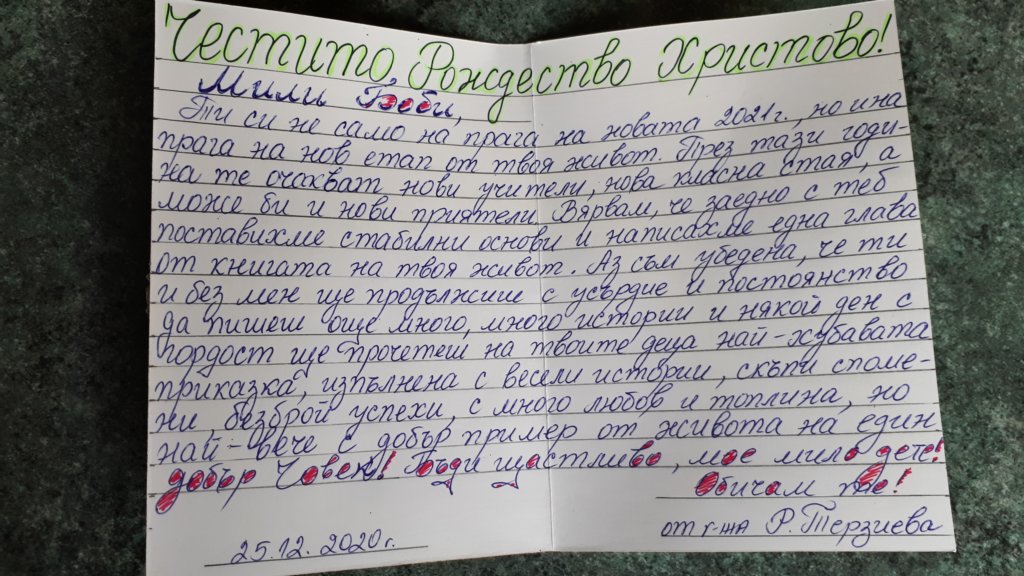 Честито Рождество Христово!
Мили Боби,
Ти си не само на прага на новата 2021г., но и на
прага на нов етап от твоя живот. През тази годи-
на те очакват нови учители, нова класна стая, а
може би и нови приятели. Вярвам, че заедно с теб
поставихме стабилни основи и написахме една глава
от книгата на твоя живот. Аз съм убедена, че ти
и без мен ще продължиш с усърдие и постоянство
да пишеш още много, много истории и някой ден с
гордост ще прочетеш на твоите деца най-хубавата
приказка, изпълнена с весели истории, скъпи споме-
ни, безброй успехи, с много любов и топлина, но
най-вече с добър пример от живота на един
добър Човек! Бъди щастливо, мое мило дете!
Обичам те!
от г-жа Р. Терзиева
25.12.2020г.